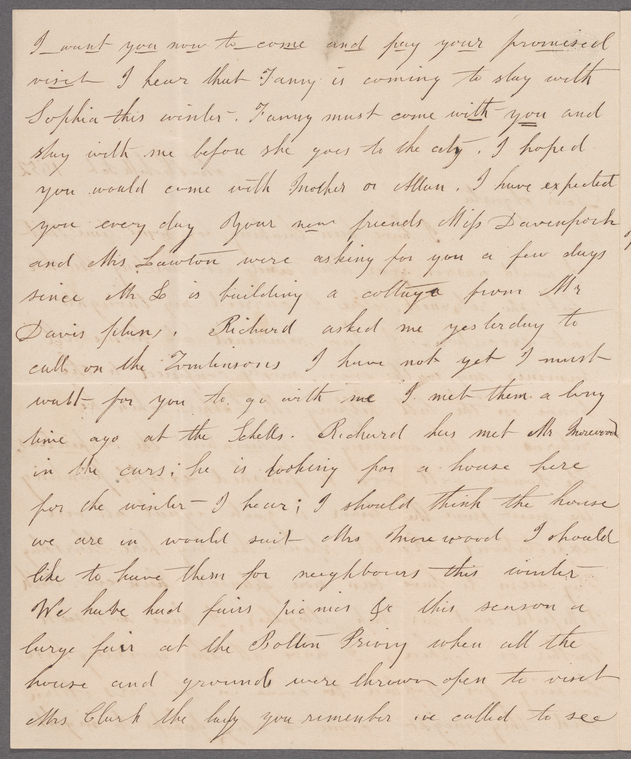 I want you now to come and pay your promised
visit I hear that Fanny is coming to stay with
Sophia this winter. Fanny must come with you and
stay with me before she goes to the city. I hoped
you would come with Mother or Allan. I have expected
you every day Your new friends Miss Davenport
and Mrs Lawton were asking for you a few days
since Mr L is building a cottage from Mr
Davis plans. Richard asked me yesterday to
call on the Tomlinsons I have not yet I must
wait for you to go with me I met them a long
time ago at the Schells. Richard has met Mr Morewood
in the cars; he is looking for a house here
for the winter I hear; I should think the house
we are in would suit Mrs Morewood I should
like to have them for neighbours this winter
We have had fairs picnics &c this season a
large fair at the Bolton Priory when all the
house and grounds were thrown open to visit
Mrs Clark the lady you remember we called to see